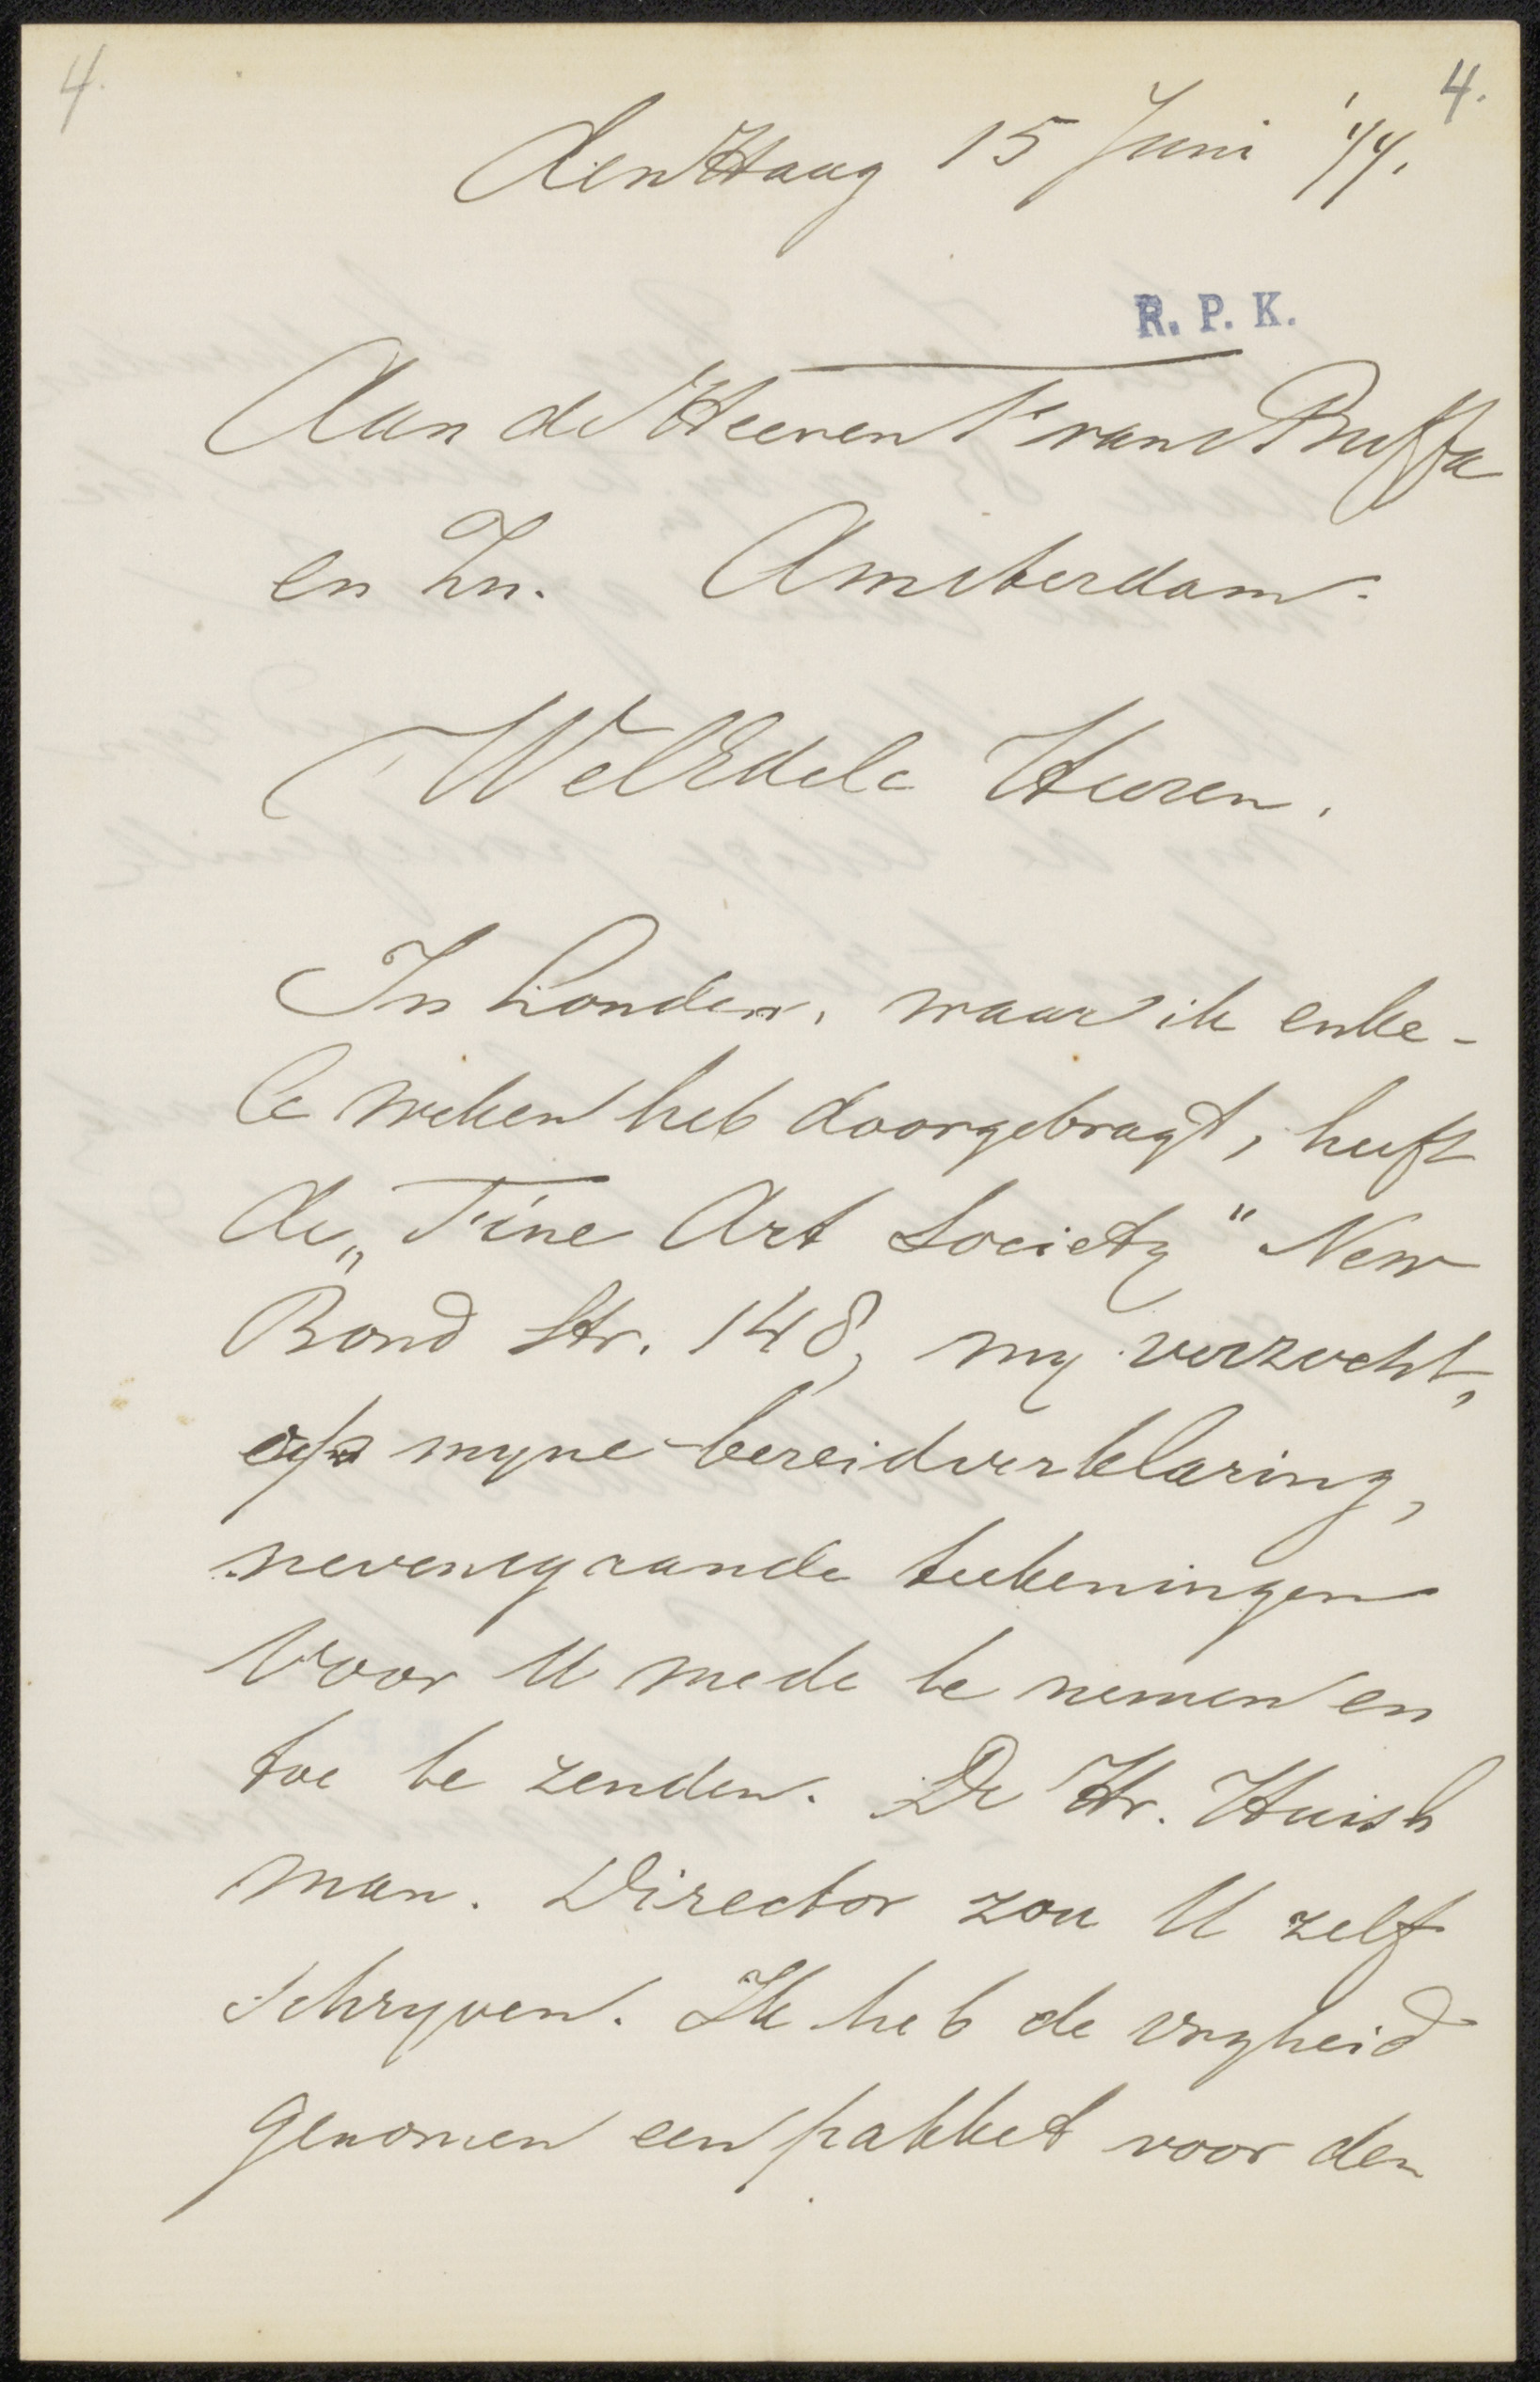 4. 4.
den Haag 15 Juni
R. P. K.
Aan de Heeren Frans Buffa
en Zn. Amsterdam.
WelEdele Heeren,
In Londen, waar ik enke-
le weken heb doorgebragt, heeft
de „Fine Art Society" New
Bond Str. 148, my verzocht,
op myne bereidverklaring,
nevensgaande teekeningen
voor U mede te nemen en
toe te zenden. De Hr. Huish
man. Director zou U zelf
schryven. Ik heb de vryheid
genomen een pakket voor den